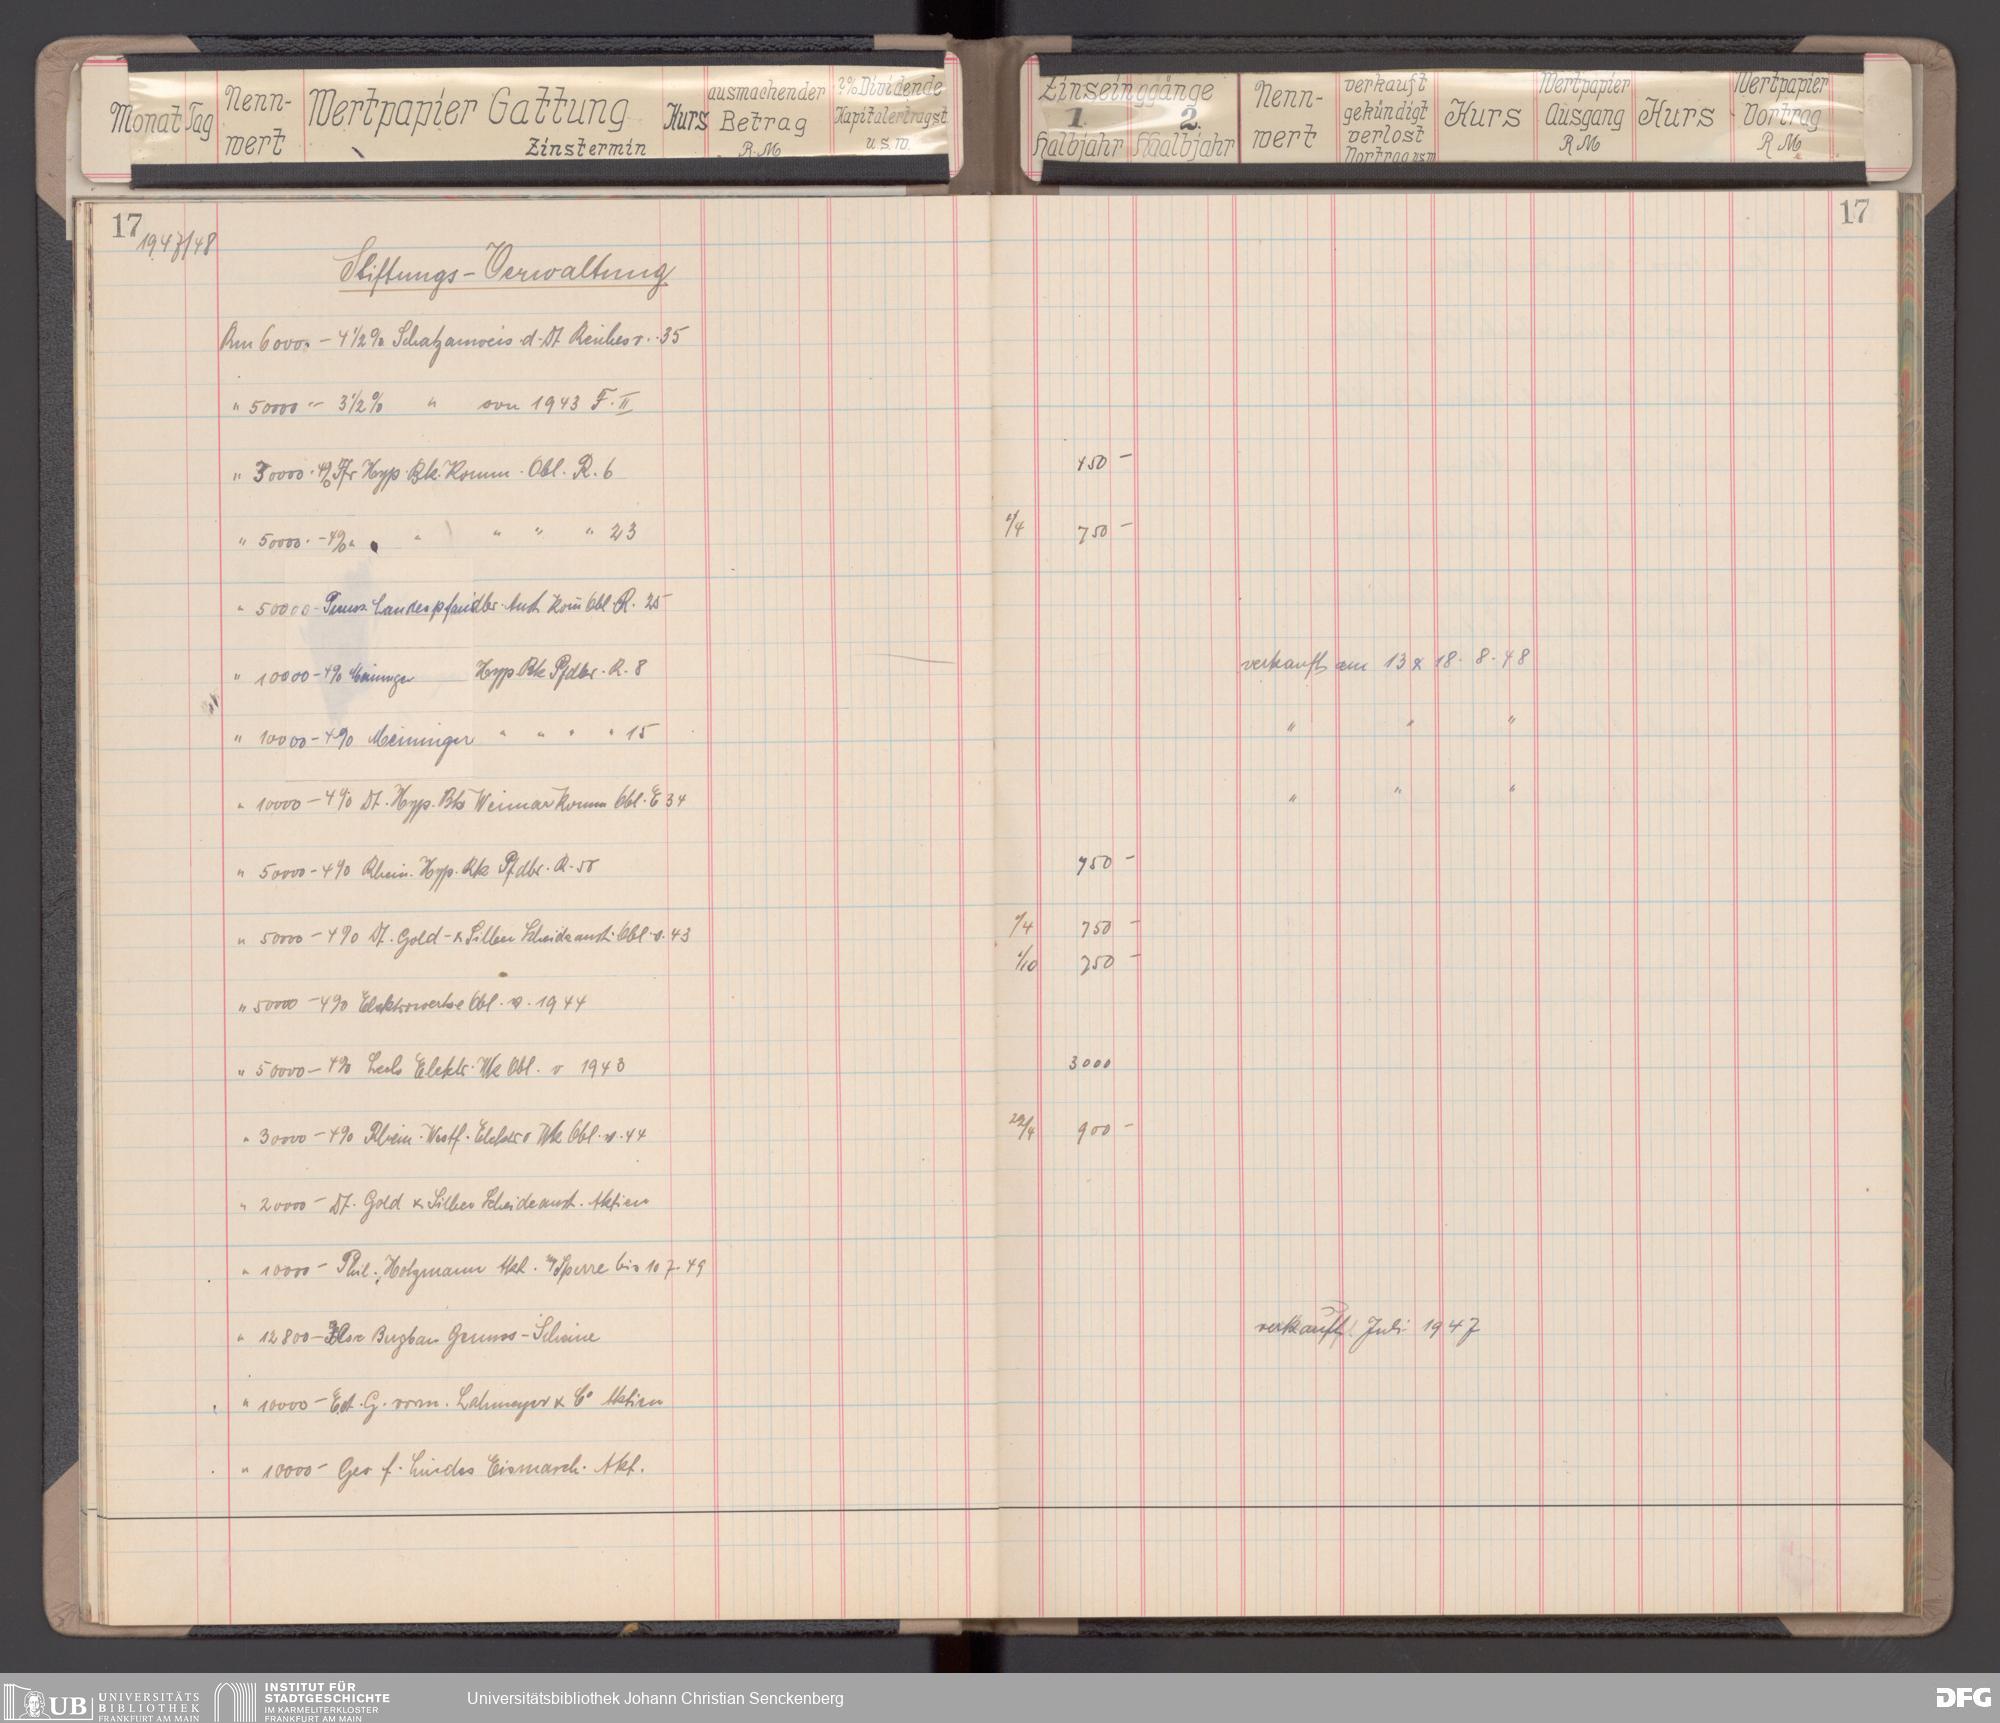 Monat Tag Nenn-wert Wertpapier Gattung Zinstermin Kurs ausmachender Betrag R.M. ?% Dividende Kapitalertragst. u.s.w.
Zinseingänge 1. Halbjahr 2. Halbjahr Nenn-wert verkauft gekündigt verlost Vortrag usw Kurs Wertpapier Ausgang RM Kurs Wertpapier Vortrag RM
17 17
1947/48
Stiftungs-Verwaltung
Rm 6000.- 4 1/2% Schatzanweis. d. Dt Reiches v. 35
" 50000 - 3 1/2% " von 1943 F. II
" 30000.- 4% Ffr Hyp. Bk. Komm. Obl. R. 6 450 -
" 50000.- 4% " " " " " 23 1/4 750 -
" 50000 - Landespfandbr. Anst Kom Obl. R. 25
" 10000 - 4% Meininger Hyp Bk Pfdbr. R. 8 verkauft am 13 & 18. 8. 48
" 10000 - 4% Meininger " " " " 15 " " "
" 10000 - 4% Dt. Hyp. Bk Weimar Komm Obl. E 34 " " "
" 50000 - 4% Rhein. Hyp. Bk Pfdbr. R. 750 -
" 50000 - 4% Dt. Gold- & Silber Scheideanst. Obl. v. 43 1/4 750 -
1/10 750 -
" 50000 - 4% Elektrowerke Obl. v. 1944
" 50000 - 4% Elektr. Wk Obl. v 1943 3000
" 30000 - 4% Rhein. Westf. Elektro Wk Obl. v. 44 900 -
" 20000 - Dt. Gold & Silber Scheideanst. Aktien
" 10000 - Phil. Holzmann Akt. Sperre bis 10 7. 49
" 12800 - Ilse Bergbau Genuss-Scheine verkauft Juli 1947
" 10000 - vorm. Lahmeyer & Co Aktien
" 10000 - Ges f. Lindes Eismasch. Akt.
UB UNIVERSITÄTS
BIBLIOTHEK
FRANKFURT AM MAIN
INSTITUT FÜR
STADTGESCHICHTE
IM KARMELITERKLOSTER
FRANKFURT AM MAIN
Universitätsbibliothek Johann Christian Senckenberg
DFG